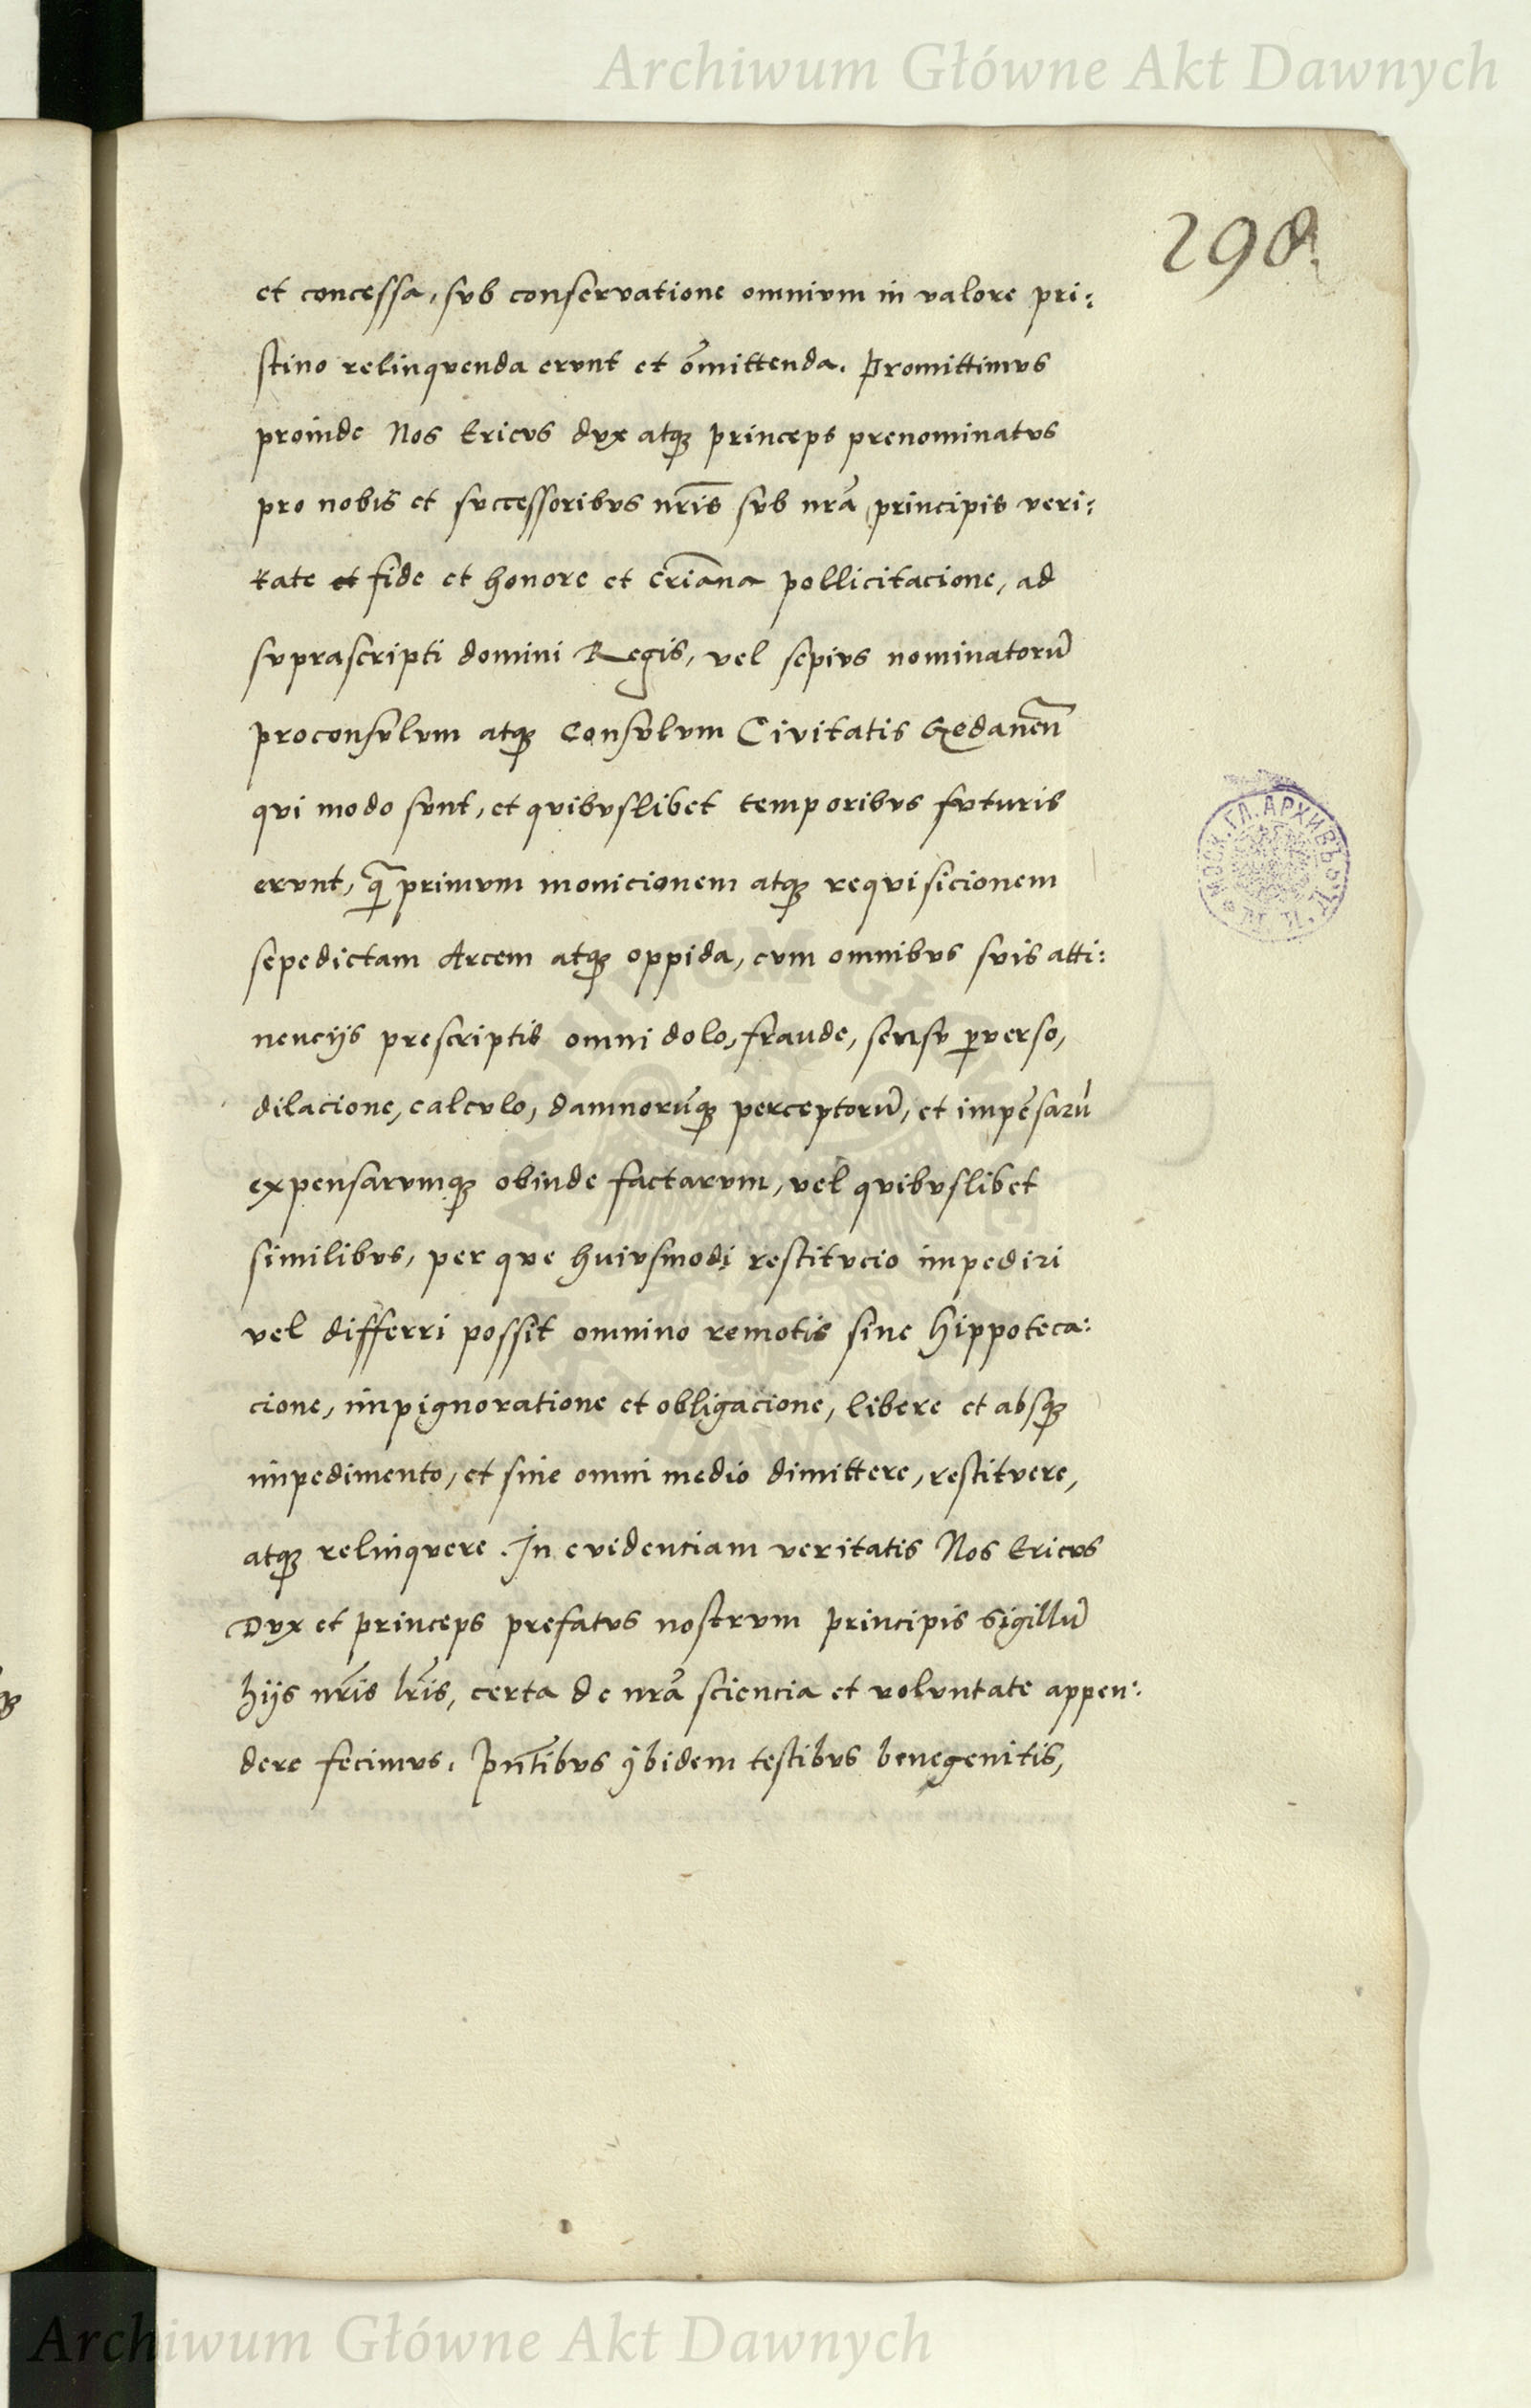 Archiwum Główne Akt Dawnych
298.
et concessa, sub conservatione omnium in valore pri:
stino relinquenda erunt et om̃ittenda. Promittimus
proinde Nos Ericus dux atqꝫ princeps prenominatus
pro nobis et successoribus nr̃is sub nrã principis veri:
tate et fide et honore et cr̃iana pollicitacione, ad
suprascripti domini Regis, vel sepius nominatorũ
proconsulum atqꝫ Consulum Civitatis Gedaneñ
qui modo sunt, et quibuslibet temporibus futuris
erunt, q̃ primum monicionem atqꝫ requisicionem
sepedictam Arcem atqꝫ oppida, cum omnibus suis atti:
nencijs prescriptis omni dolo, fraude, sensu ꝑverso,
dilacione, calculo, damnorũqꝫ perceptorũ, et impẽsarũ
expensarumqꝫ obinde factarum, vel quibuslibet
similibus, per que huiusmodi restitucio impediri
vel differri possit omnino remotis sine hippoteca:
cione, impignoratione et obligacione, libere et absqꝫ
impedimento, et sine omni medio dimittere, restituere,
atqꝫ relinquere. In evidenciam veritatis Nos Ericus
Dux et princeps prefatus nostrum principis sigillũ
hijs nr̃is lr̃is, certa de nrã sciencia et voluntate appen:
dere fecimus. Pñtibus ibidem testibus benegenitis,
МОСК. ГЛ. АРХИВЪ
ARCHIWUM GŁÓWNE
AKT DAWNYCH
Archiwum Główne Akt Dawnych